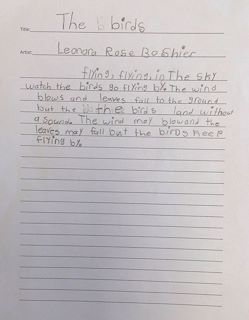 Title: The birds
Artist: Leonora Rose Boshier
flying, flying, in The sky
watch the birds go flying by. The wind
blows and leaves fall to the ground
but the the birds land without
a sound. The wind may blow and the
leaves may fall but the birds keep
flying by.